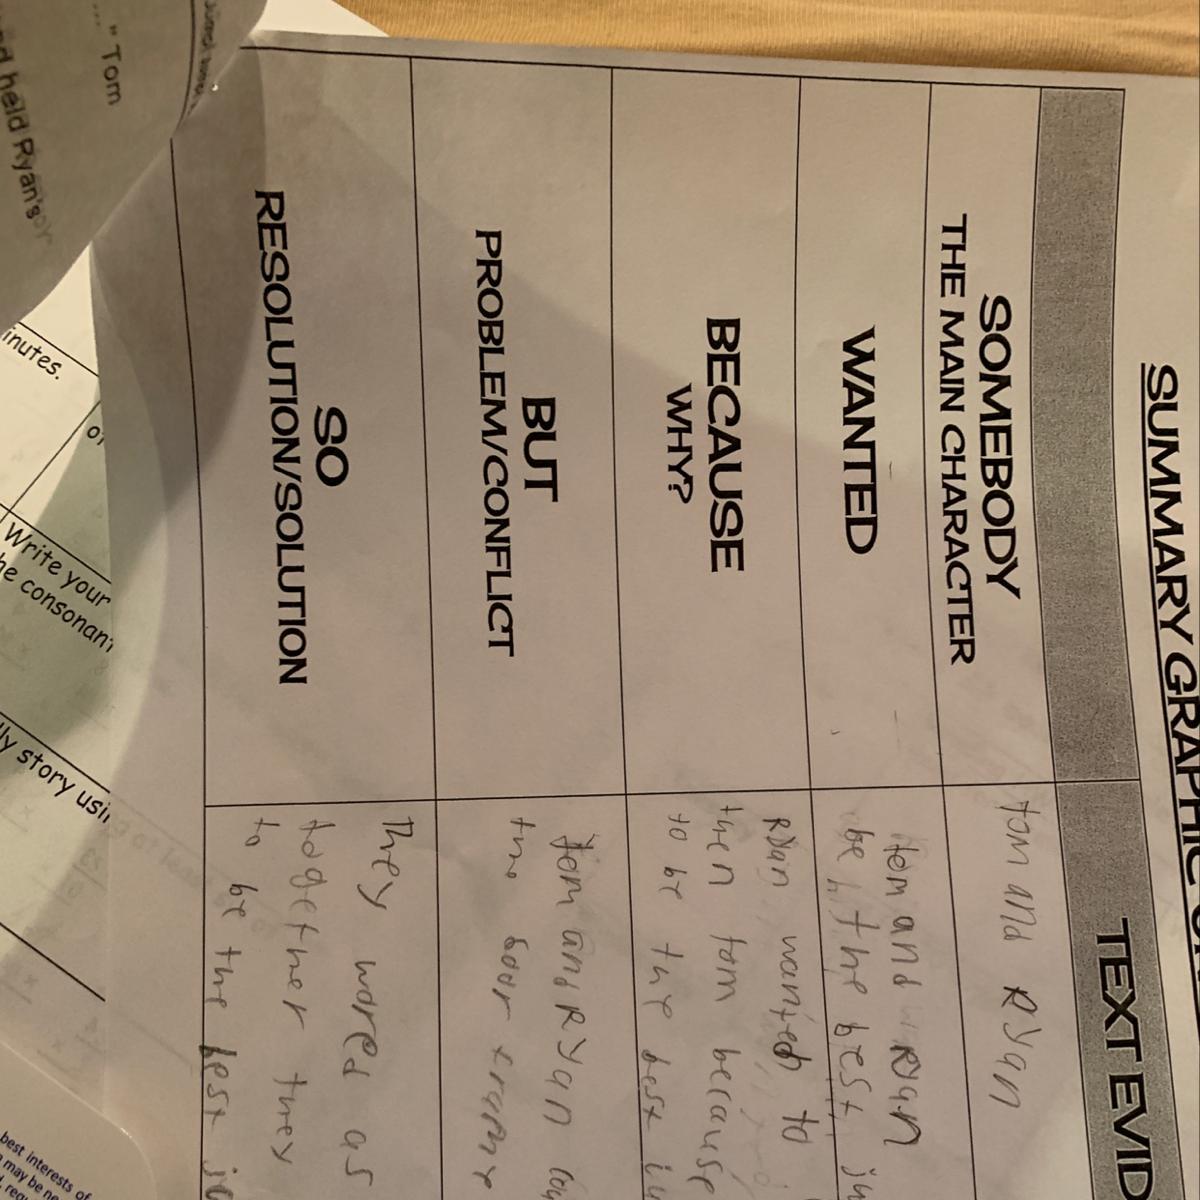 SUMMARY GRAPHIC
TEXT EVID
SOMEBODY
THE MAIN CHARACTER
tom and Ryan
WANTED
tom and Ryan
be the best
BECAUSE
WHY?
Ryan wanted to
then tom because
to be the best
BUT
PROBLEM/CONFLICT
tom and Ryan
SO
RESOLUTION/SOLUTION
They wored as
together they
to be the best
" Tom
held Ryan's
inutes.
Write your
he consonant
lly story usi
best interests of
may be